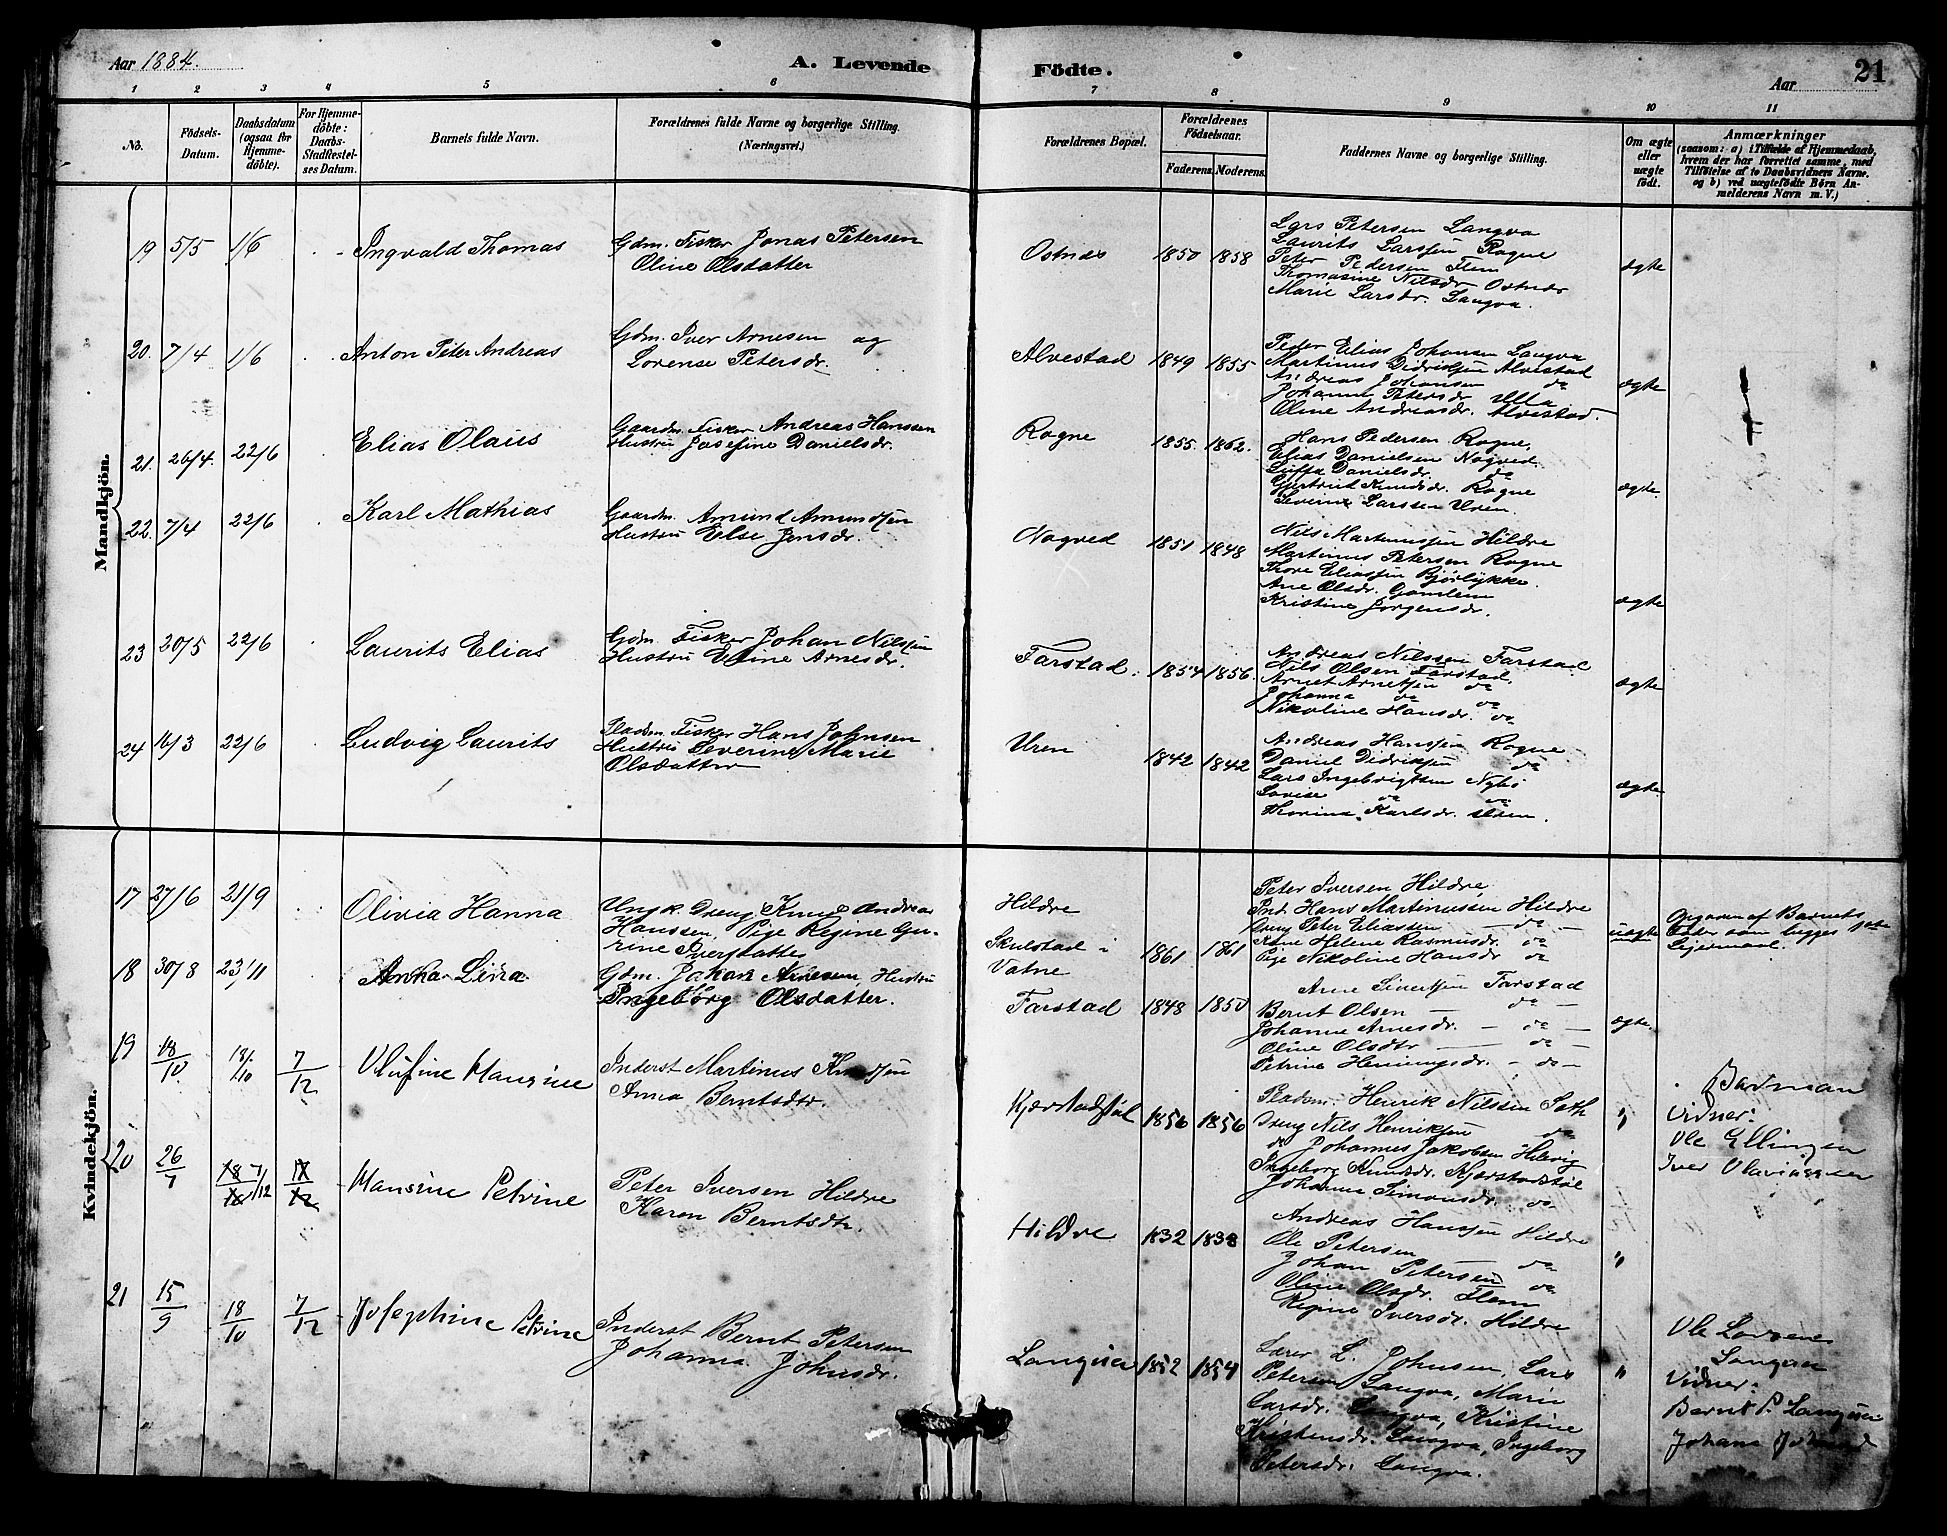 Aar 1884.
A. Levende Födte.
Aar
21
1 2 3 4 5 6 7 8 9 10 11
No.
Födsels-Datum.
Daabsdatum (ogsaa for Hjemme-döbte).
For Hjemme-döbte: Daabs-Stadfestel-ses Datum.
Barnets fulde Navn.
Forældrenes fulde Navne og borgerlige Stilling.
(Næringsvei.)
Forældrenes Bopæl.
Forældrenes Födselsaar.
Faderens. Moderens.
Faddernes Navne og borgerlige Stilling.
Om ægte eller uægte födt.
Anmærkninger
(saasom: a) i Tilfælde af Hjemmedaab, hvem der har forrettet samme, med Tilföielse af to Daabsvidners Navne. og b) ved uægtefödte Börn An-melderens Navn m. V.)
Mandkjön.
19 5/5 1/6 Ingvald Thomas
Gdm. Fisker Jonas Petersen
Oline Olsdatter
Ostnes 1850 1858
Lars Petersen Langva
Laurits Larssen Rogne
Peter Pedersen Flem
Thomasine Nilsdr Ostnes
Marie Larsdr. Langva.
ægte
20. 7/4 1/6 Anton Peter Andreas
Gdm. Iver Arnesen og
Lorense Petersdr.
Alvestad 1849 1855
Peder Elias Johansen Langva
Martinus Didriksen Alvestad
Andreas Johansen do
Johanne Petersdr Ulla
Oline Andreasdr. Alvestad.
ægte
21. 26/4. 22/6 Elias Olaus
Gaardm. Fisker Andreas Hanssen
Hustru Josefine Danielsdr.
Rogne 1855. 1862.
Hans Pedersen Rogne.
Elias Danielsen Nogved
Danielsdr. do
Gjertrud Knudsdr. Rogne
Severine Larssen Uren.
ægte
22. 7/4 22/6 Karl Mathias
Gaardm. Amund Amundsen
Hustru Else Jonsdr.
Nogved 1851 1848
Nils Martinussen Hildre
Martinus Petersen Rogne
Thore Eliassen Bjørlykke.
Ane Olsdr. Gamlem
Kristine Jørgensdr.
ægte
23 20/5 22/6 Laurits Elias
Gdm. Fisker Johan Nilssen
Hustru Eline Arnesdr.
Farstad. 1854 1856.
Andreas Nilssen Farstad
Nils Olsen Farstad.
Arnet Arnetsen do
Johanna do do
Nikoline Hansdr. do
ægte
24 16/3 22/6 Ludvig Laurits
Pladsm. Fisker Hans Johnsen
Hustru Severine Marie
Olsdatter
Uren 1842 1842
Andreas Hanssen Rogne
Daniel Didriksen do
Lars Ingebrigtsen Nybø
Lovise do do
Thorina Karlsdr. Uren.
ægte.
Kvindekjön.
17 27/6 21/9 Olivia Hanna
Ungk. Dreng Knud Andreas
Hanssen Pige Regine Gu-
rine Iversdatter
Hildre
Skulstad i
Vatne
1861 1861
Peter Iversen Hildre
Ind. Hans Martinussen Hildre
Dreng Peter Eliassen — do —
Kone Helene Rasmusdr. do
Pige Nikoline Hansdr do
uægte
Opgaven af Barnets
Fader som begges 1ste
Leiermaal.
18 30/8 23/11 Anna Lina
Gdm. Johan Arnesen, Hustru
Ingeborg Olsdatter.
Farstad 1848 1850
Arne Sivertsen Farstad
Bernt Olsen — do —
Johanne Arnesdr. — do —
Oline Olsdtr — do —
Petrine Henningsdr. — do —
ægte.
19 18/10 18/10 7/12 Olufine Mansine
Inderst Martinus Knudsen
Anna Berntsdtr.
Kjærstadstøl 1856 1856
Pladsm. Henrik Nilssen Sæth
Dreng Nils Henriksen do
do Johannes Jakobsen Helvig
Ingeborg Knudsdr. Kjærstadstøl
Johanne Simonsdr. do
"
Barnan
Vidner:
Ole Ellingsen
Iver Olaviussen
20 26/7 18/10 7/12 Mansine Petrine
Peter Iversen Hildre
Karen Berntsdtr.
Hildre 1832 1838
Andreas Hanssen Hildre
Ole Petersen
Johan Petersen do
Oline Olsdr. Flem do
Regine Iversdr. Hildre
"
21 15/9 18/10 7/12 Josephine Petrine
Inderst Bernt Petersen
Johanna Johnsdr.
Langva 1852 1854
Lærer L. Johnsen, Lars
Petersen Langva, Marie
Larsdr. Langva, Kristine
Kristensdr. Langva, Ingeborg
Petersdr. Langva.
"
Ole Larsens
Langva
Vidner:
Bernt P. Langva
Johana